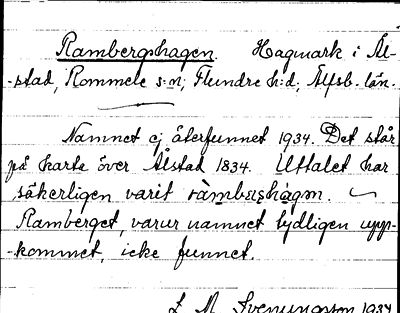 Rambergshagen. Hagmark i Ål-
-stad, Rommele s:n, Flundre h:d, Älfsb. län.
Namnet ej återfunnet 1934. Det står
på karta över Ålstad 1834. Uttalet har
säkerligen varit ràmbæshàgɷn.
Ramberget, varur namnet tydligen upp-
-kommet, icke funnet.
L M Svenungsson 1934